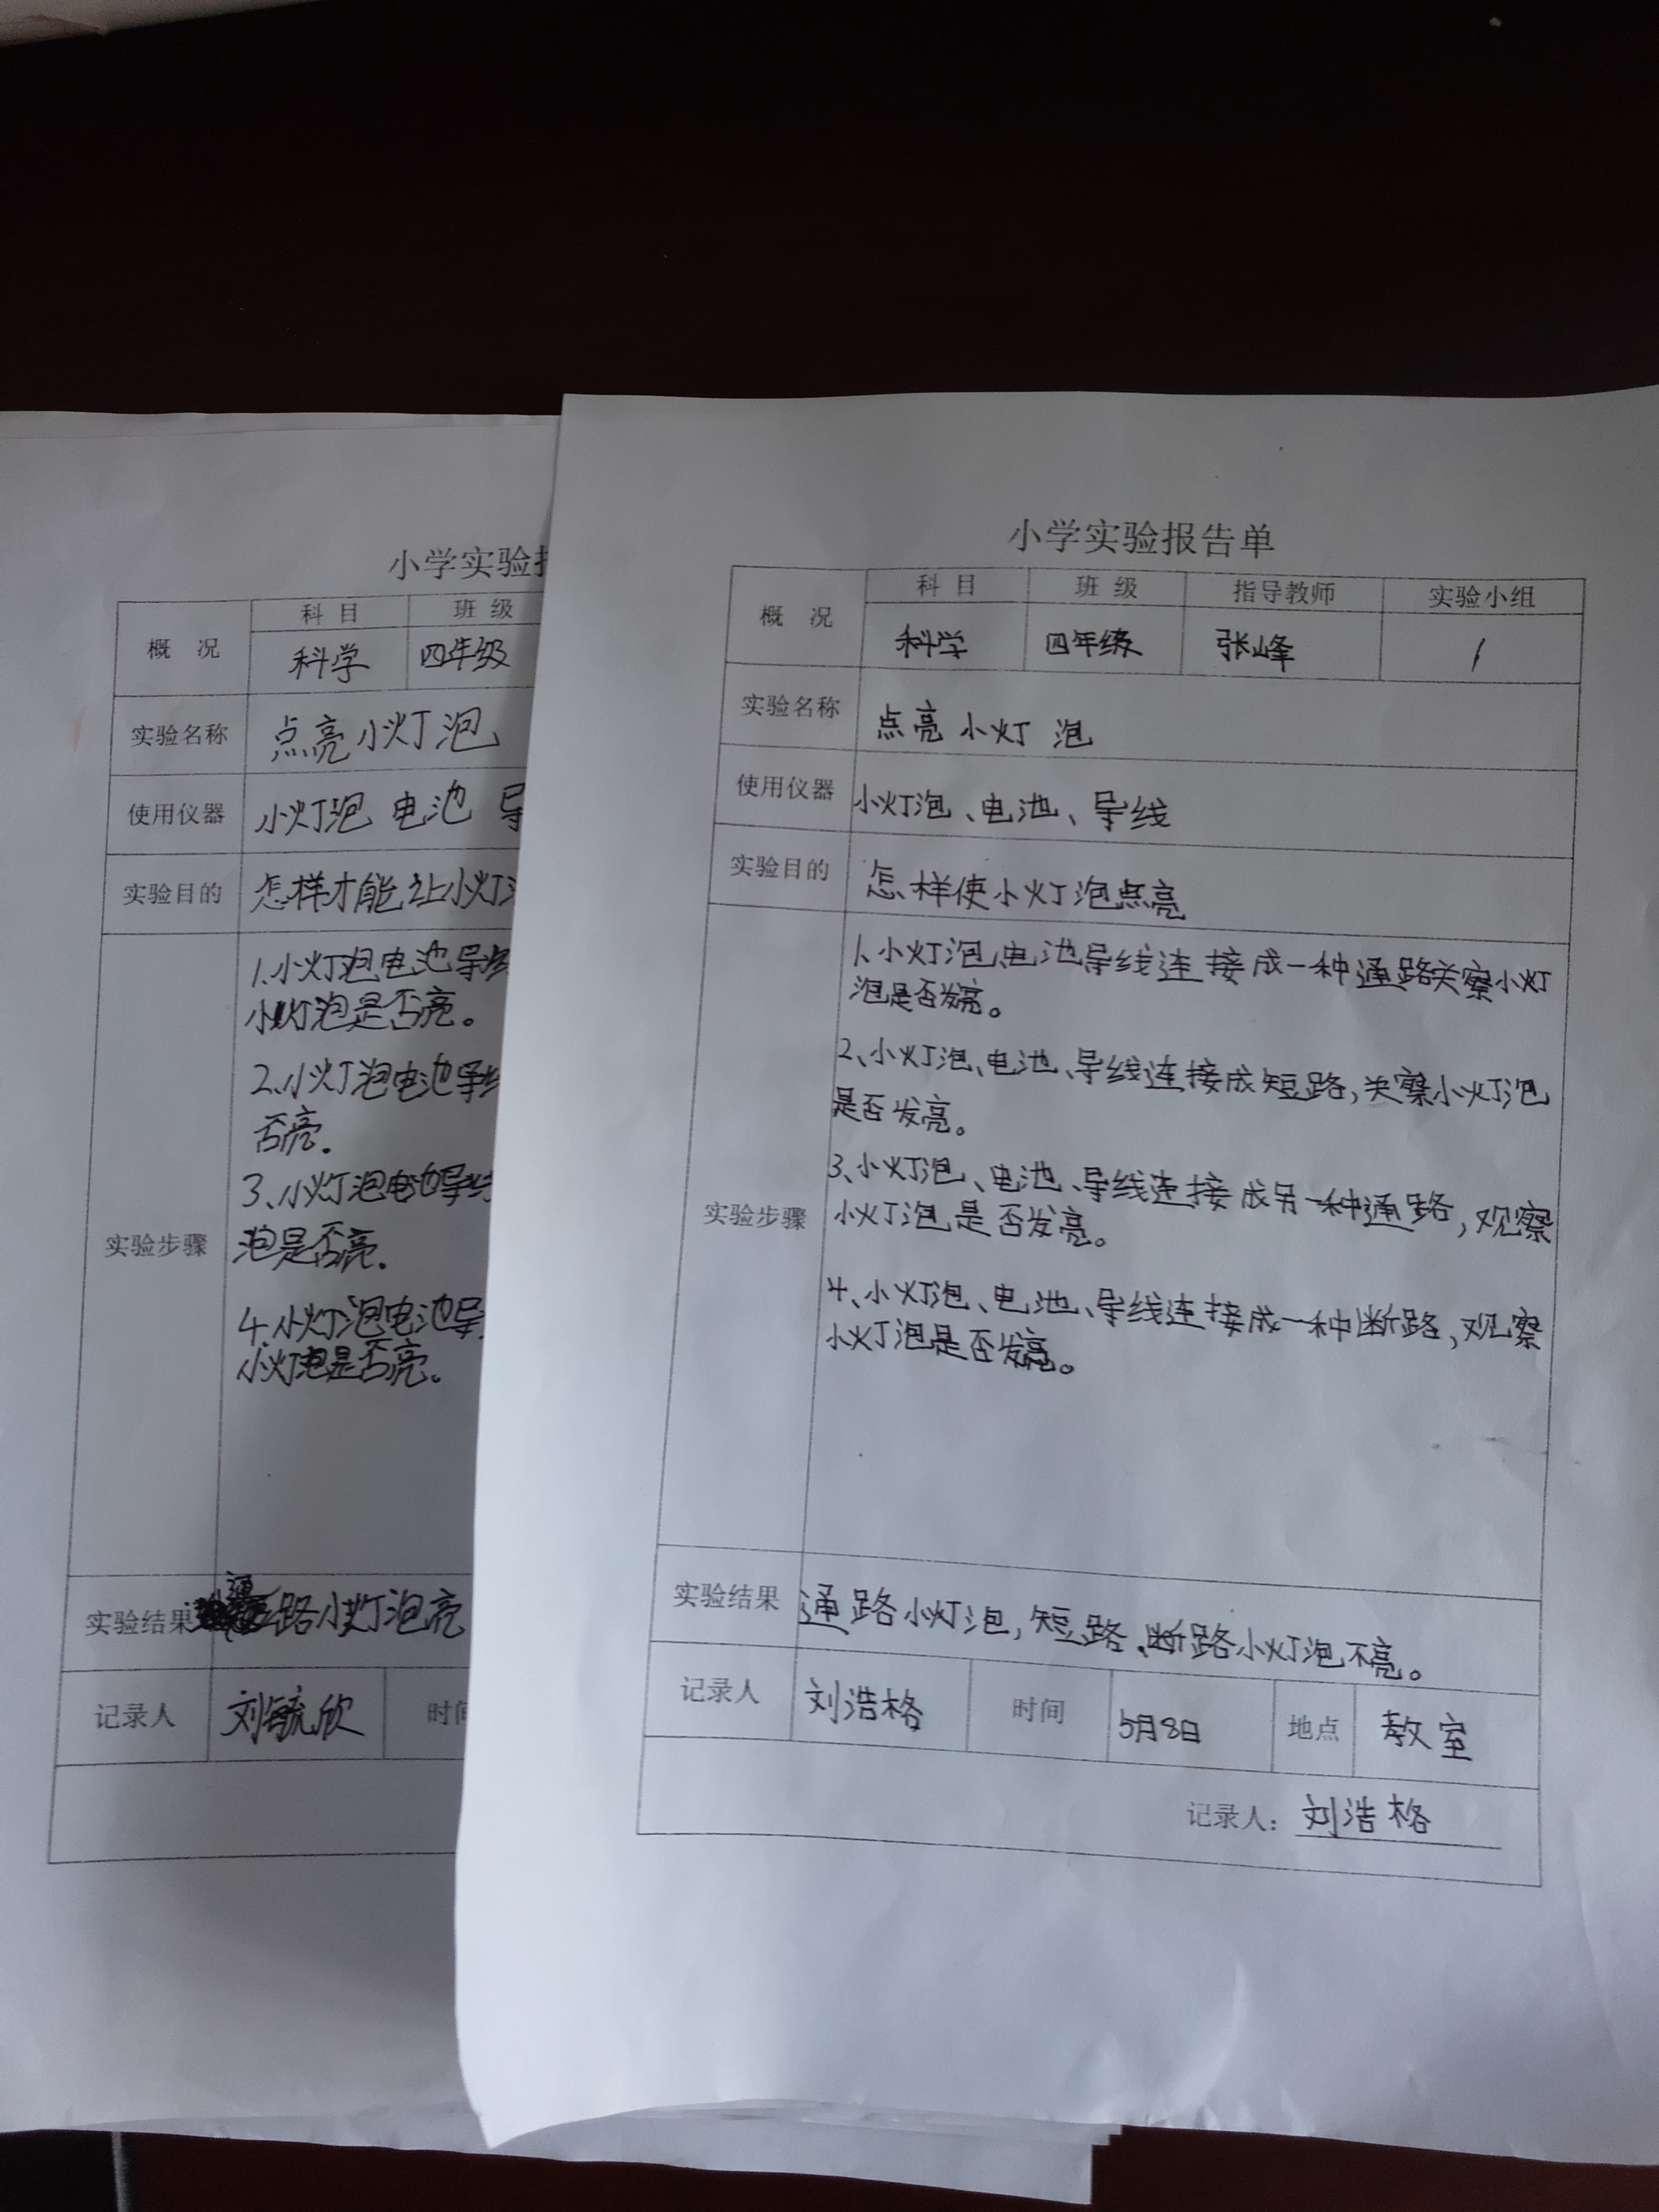 小学实验报
概 况
科 目
班 级
科学
四年级
实验名称
点亮小灯泡
使用仪器
小灯泡 电池 导
实验目的
怎样才能让小灯
实验步骤
1.小灯泡电池导线
小灯泡是否亮。
2.小灯泡电池导线
否亮.
3、小灯泡电池导线
泡是否亮.
4.小灯泡电池导
小灯泡是否亮。
实验结果
通路小灯泡亮
记录人
刘毓欣
时间
小学实验报告单
概 况
科 目
班 级
指导教师
实验小组
科学
四年级
张峰
1
实验名称
点亮小灯泡
使用仪器
小灯泡、电池、导线
实验目的
怎样使小灯泡点亮
实验步骤
1、小灯泡、电池导线连接成一种通路关察小灯
泡是否发亮。
2、小灯泡、电池、导线连接成短路,关察小灯泡
是否发亮。
3、小灯泡、电池、导线连接成另一种通路,观察
小灯泡是否发亮。
4、小灯泡、电池、导线连接成一种断路,观察
小灯泡是否发亮。
实验结果
通路小灯泡,短路、断路小灯泡不亮。
记录人
刘浩格
时间
5月8日
地点
教室
记录人:刘浩格